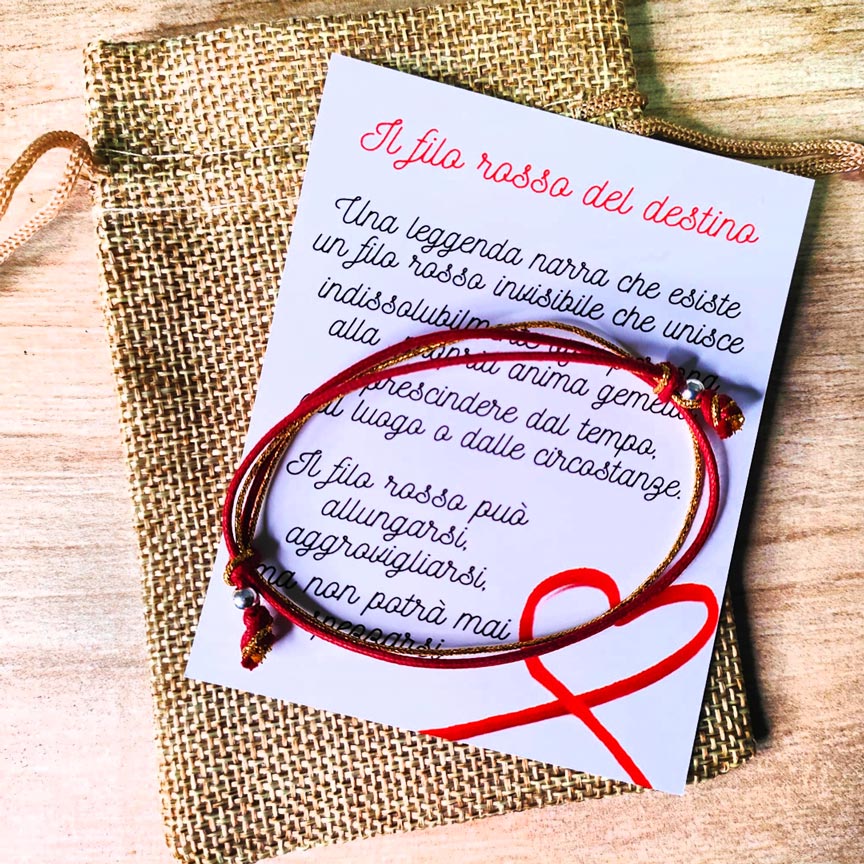 Il filo rosso del destino
Una leggenda narra che esiste
un filo rosso invisibile che unisce
indissolubilmente
alla anima gemella
prescindere dal tempo,
luogo o dalle circostanze.
Il filo rosso può
allungarsi,
aggrovigliarsi,
ma non potrà mai
spezzarsi